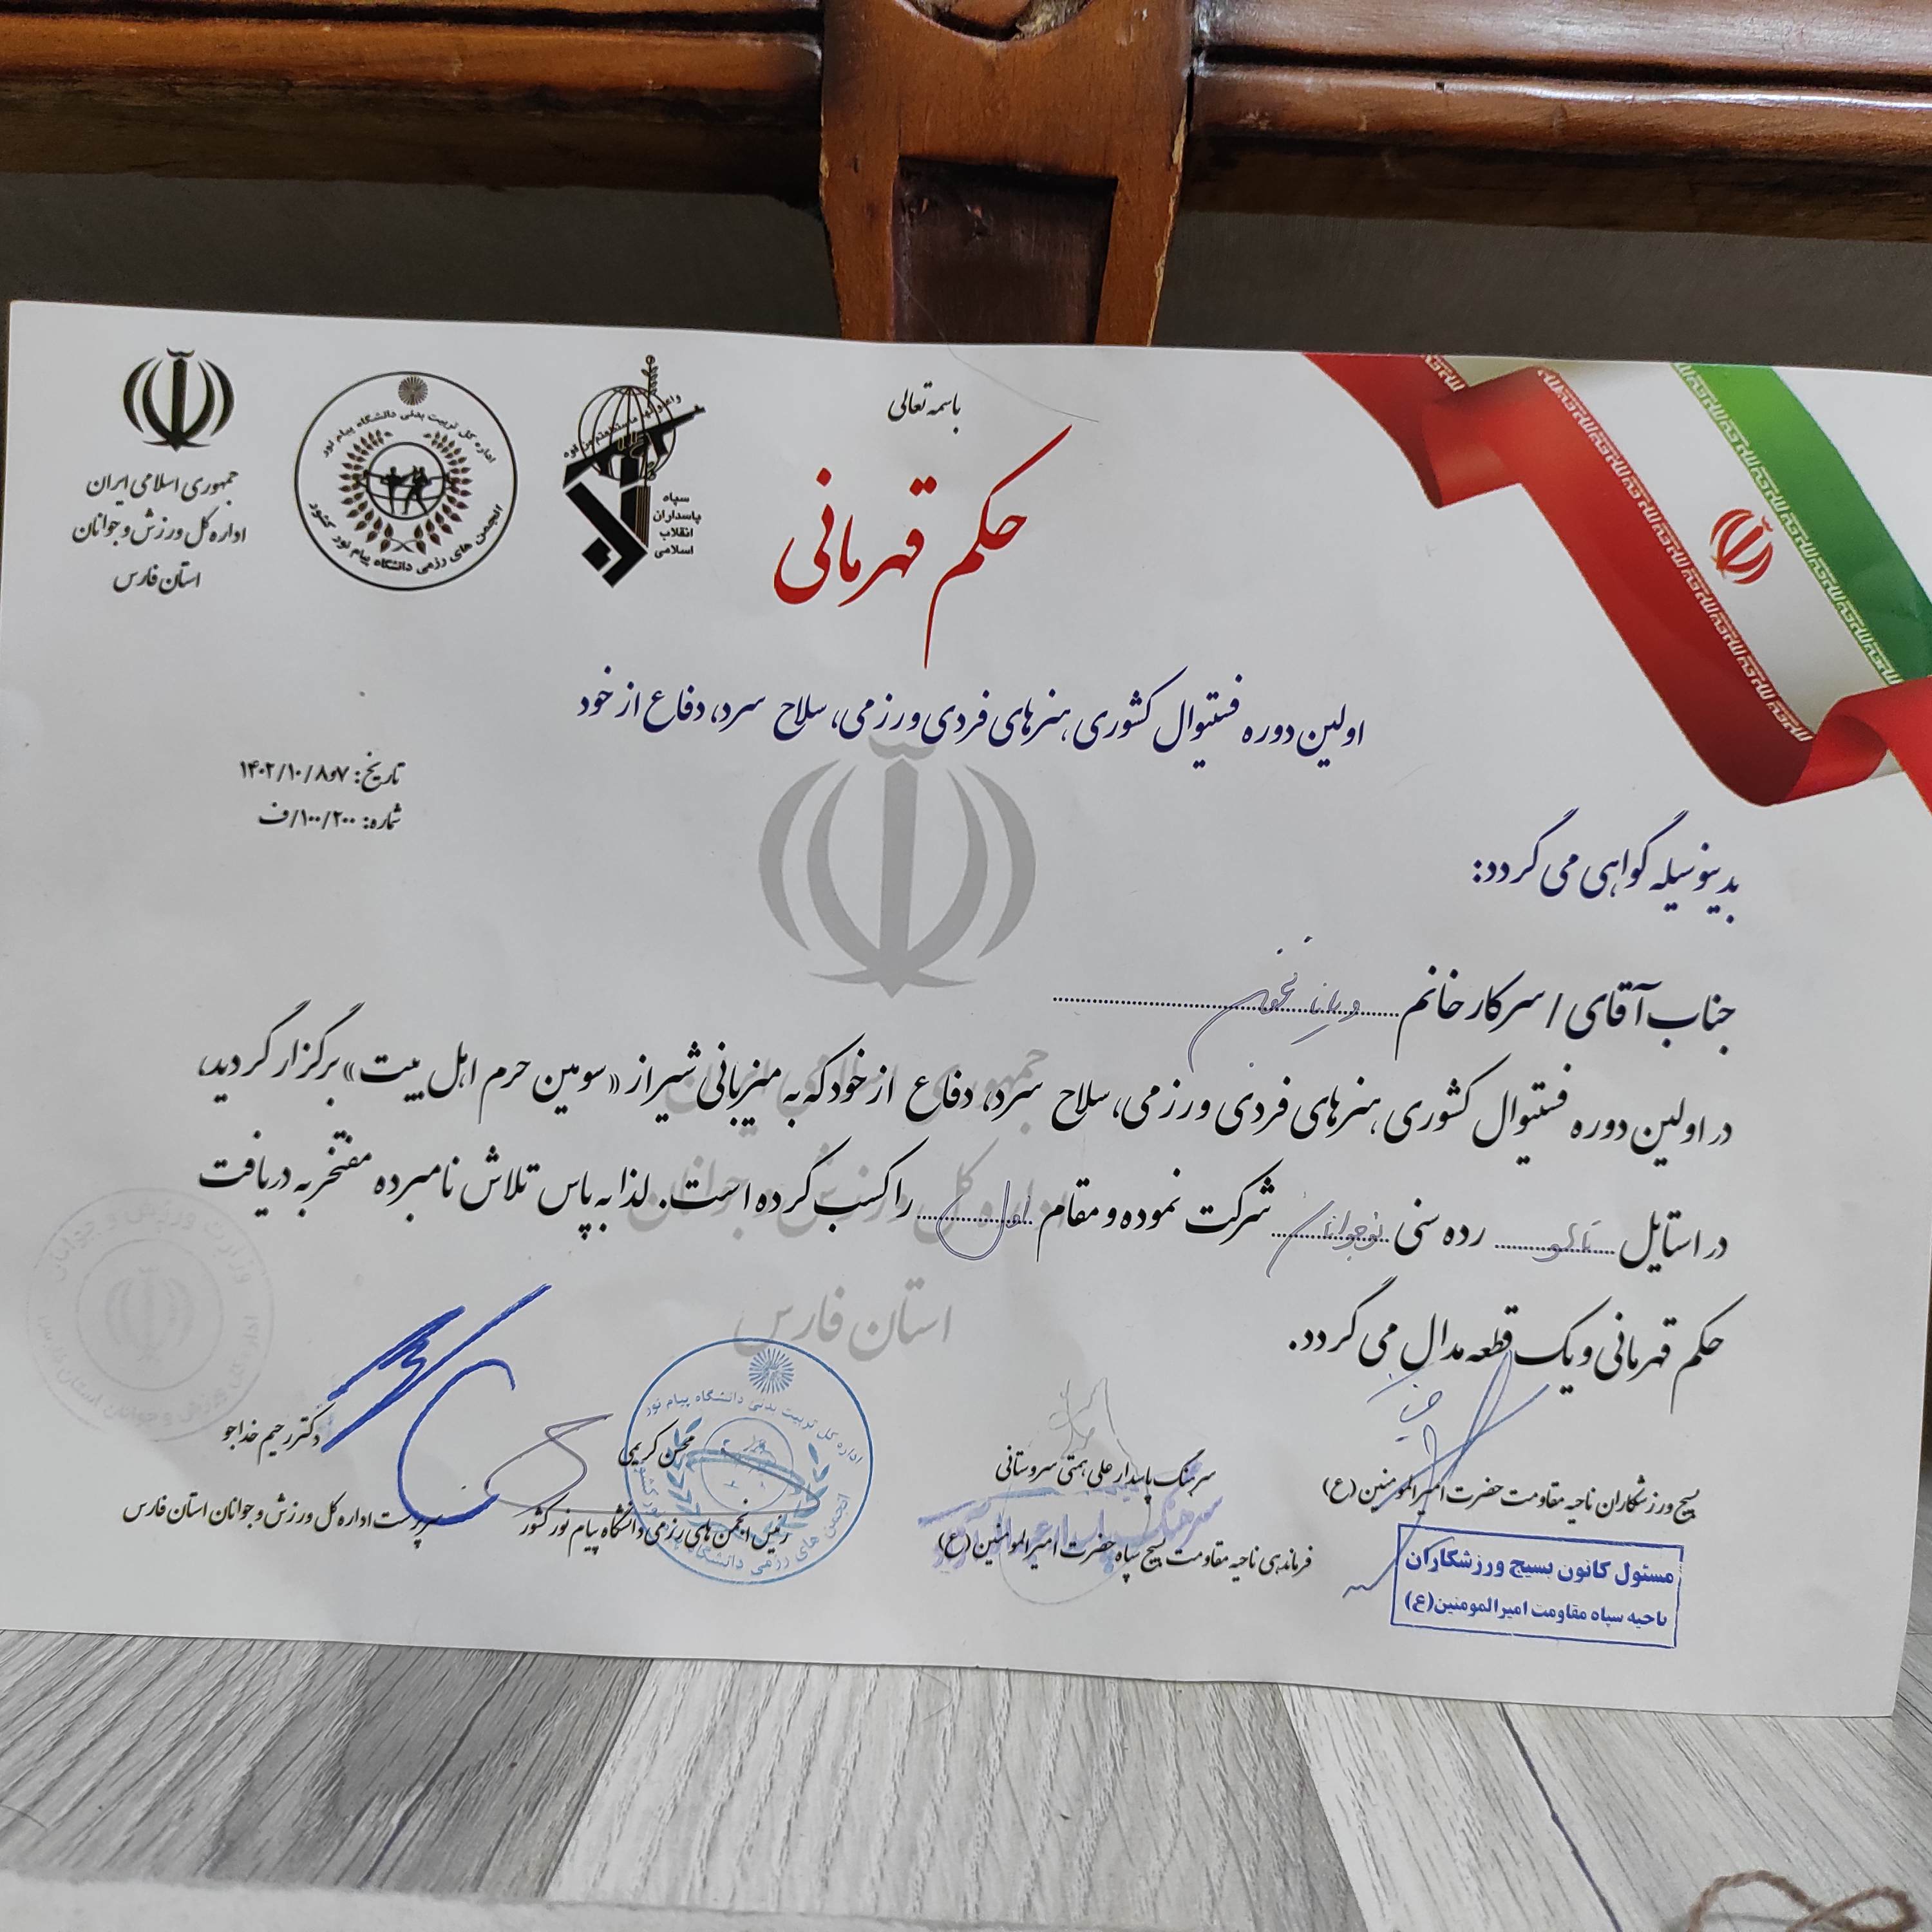 باسمه تعالی
حکم قهرمانی
جمهوری اسلامی ایران
اداره کل ورزش و جوانان
استان فارس
اداره کل تربیت بدنی دانشگاه پیام نور
انجمن های رزمی دانشگاه پیام نور کشور
سپاه
پاسداران
انقلاب
اسلامی
اولین دوره فستیوال کشوری هنرهای فردی ورزمی، سلاح سرد، دفاع از خود
تاریخ: ۷و۱۴۰۲/۱۰/۸
شماره: ۱۰۰/۲۰۰/ف
بدینوسیله گواهی می گردد:
جناب آقای / سرکار خانم
در اولین دوره فستیوال کشوری هنرهای فردی ورزمی، سلاح سرد، دفاع از خود که به میزبانی شیراز «سومین حرم اهل بیت» برگزار گردید،
در استایل رده سنی نوجوانان شرکت نموده و مقام اول را کسب کرده است. لذا به پاس تلاش نامبرده مفتخر به دریافت
حکم قهرمانی و یک قطعه مدال می گردد.
جمهوری اسلامی ایران
اداره کل ورزش و جوانان
استان فارس
بسیج ورزشکاران ناحیه مقاومت حضرت امیرالمومنین (ع)
مسئول کانون بسیج ورزشکاران
ناحیه سپاه مقاومت امیرالمومنین(ع)
سرهنگ پاسدار علی همتی سروستانی
فرماندهی ناحیه مقاومت بسیج سپاه حضرت امیرالمومنین (ع)
محسن کریمی
رئیس انجمن های رزمی دانشگاه پیام نور کشور
اداره کل تربیت بدنی دانشگاه پیام نور
انجمن های رزمی دانشگاه پیام نور کشور
دکتر رحیم خداجو
سرپرست اداره کل ورزش و جوانان استان فارس
وزارت ورزش و جوانان
اداره کل ورزش و جوانان استان فارس